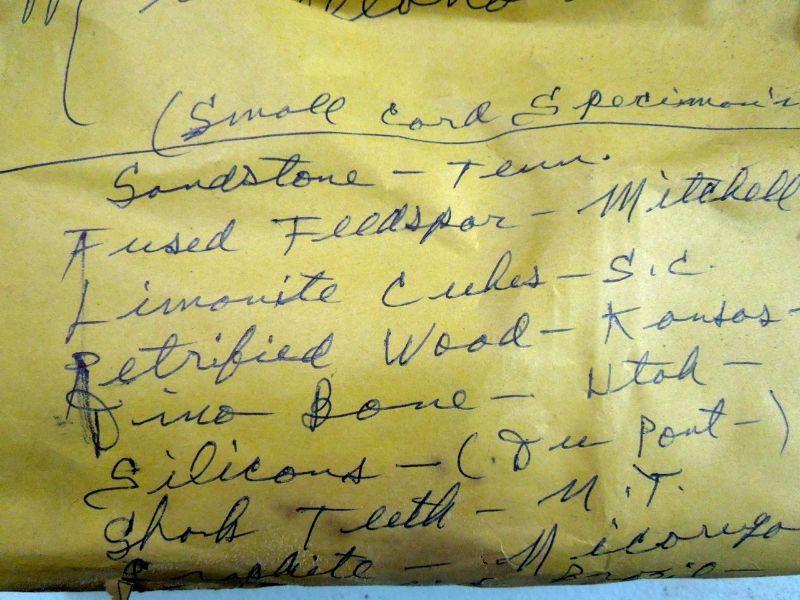 (Small Card Specimoin's
Sandstone - Tenn.
Fused Feldspar - Mitchell
Limonite Cubes - S.C.
Petrified Wood - Kansas -
Dino Bone - Utah -
Silicons - (Du Pont -)
Shark Teeth - N.T.
Graphite -